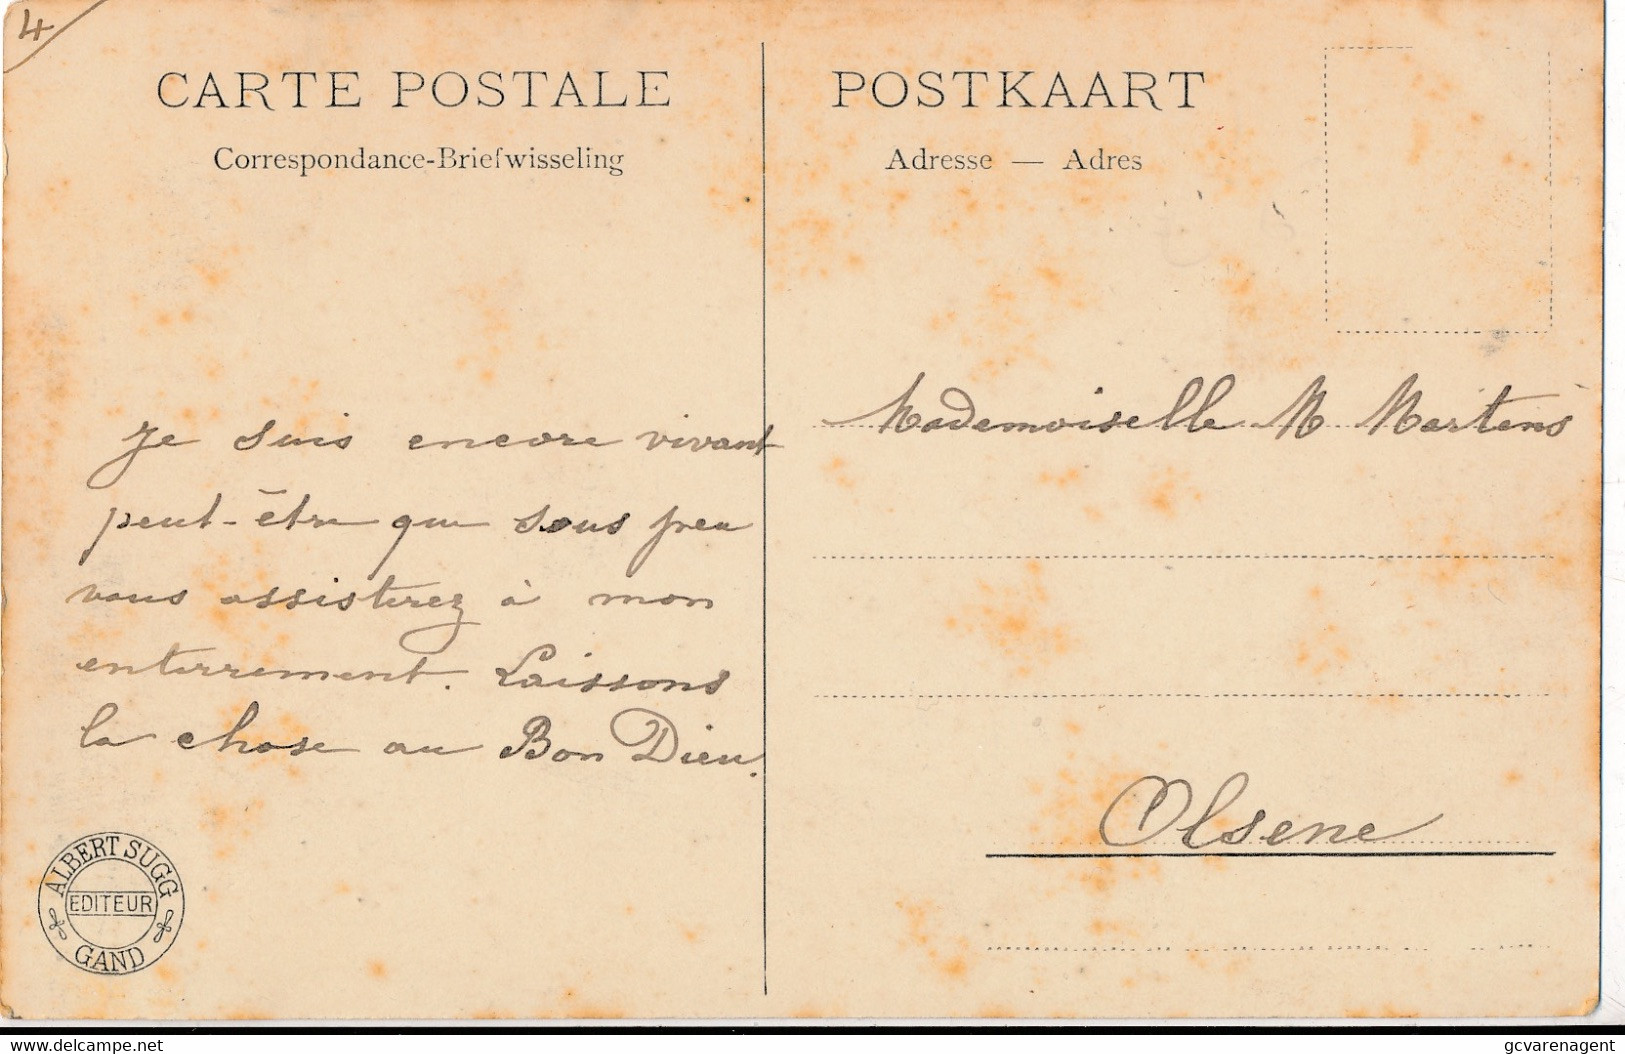 4
CARTE POSTALE
Correspondance-Briefwisseling
Je suis encore vivant
peut-être que sous peu
vous assisterez à mon
enterrement. Laissons
la chose au Bon Dieu.
ALBERT SUGG
EDITEUR
GAND
POSTKAART
Adresse — Adres
Mademoiselle M Martens
Olsene
delcampe.com
gcvarenagent